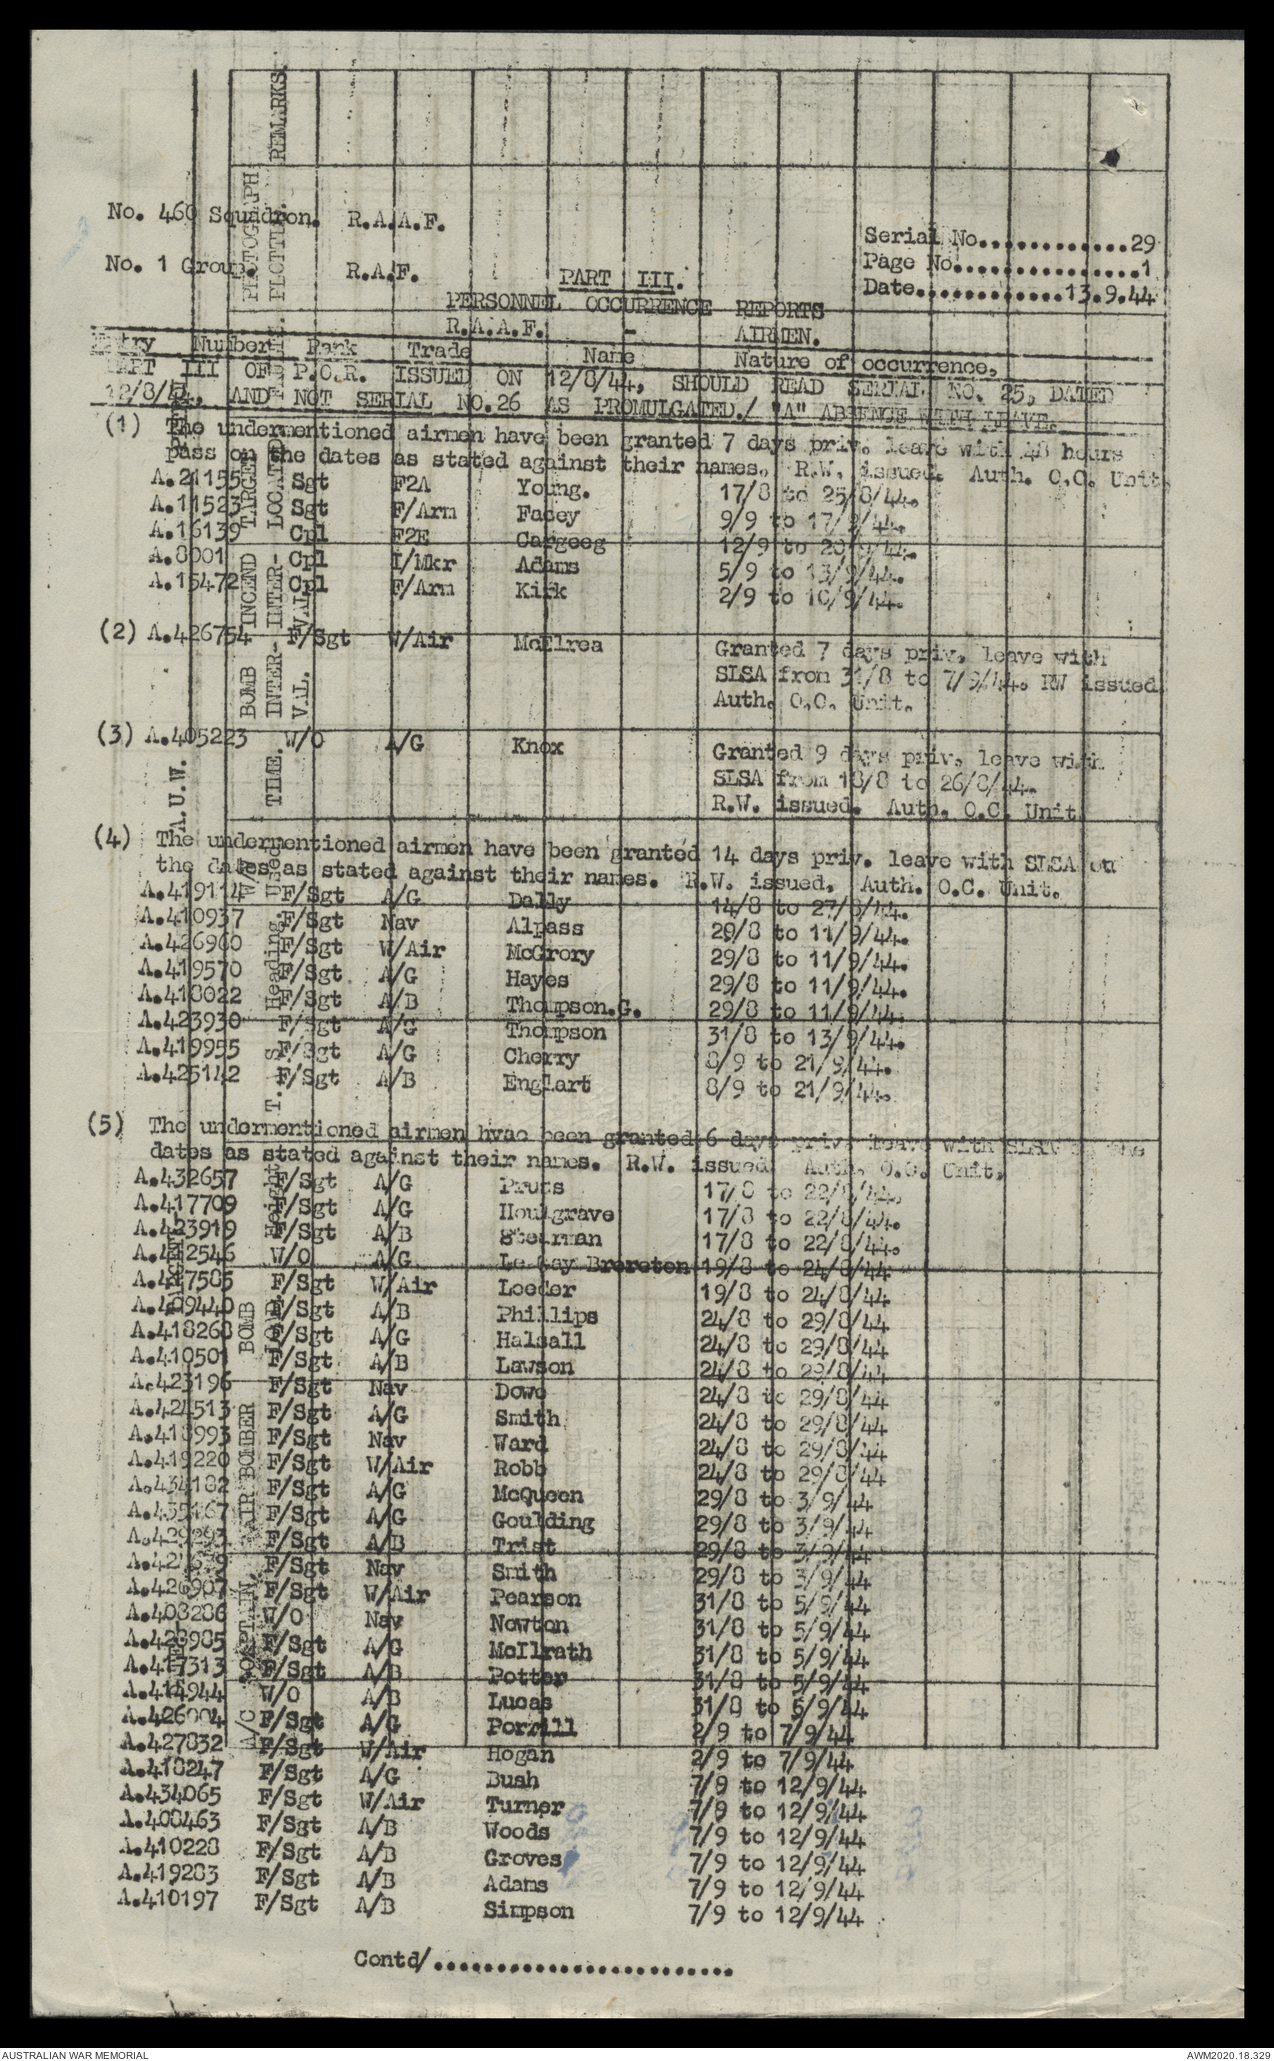 No. 460 Squadron. R.A.A.F.
Serial No.............29
No. 1 Group. R.A.F.
Page No................1
Date.............13.9.44
PART III.
PERSONNEL OCCURRENCE REPORTS
R.A.A.F. - AIRMEN.
Entry Number Rank Trade Name Nature of occurrence.
PART III OF P.O.R. ISSUED ON 12/8/44, SHOULD READ SERIAL NO. 25, DATED
12/8/44, AND NOT SERIAL NO.26 AS PROMULGATED./ "A" ABSENCE WITH LEAVE.
(1) The undermentioned airmen have been granted 7 days priv. leave with 48 hours
pass on the dates as stated against their names. R.W. issued. Auth. O.C. Unit.
A.21155 Sgt F2A Young. 17/8 to 25/8/44.
A.11523 Sgt F/Arm Facey 9/9 to 17/9/44.
A.16139 Cpl F2E Cargeeg 12/9 to 20/9/44.
A.8001 Cpl I/Mkr Adams 5/9 to 13/9/44.
A.15472 Cpl F/Arm Kirk 2/9 to 10/9/44.
(2) A.426754 F/Sgt W/Air McElrea Granted 7 days priv. leave with
SLSA from 31/8 to 7/9/44. RW issued
Auth. O.C. Unit.
(3) A.405223 W/O A/G Knox Granted 9 days priv. leave with
SLSA from 18/8 to 26/8/44.
R.W. issued. Auth. O.C. Unit
(4) The undermentioned airmen have been granted 14 days priv. leave with SLSA on
the dates as stated against their names. R.W. issued. Auth. O.C. Unit.
A.419114 F/Sgt A/G Dally 14/8 to 27/8/44.
A.410937 F/Sgt Nav Alpass 29/8 to 11/9/44.
A.426960 F/Sgt W/Air McGrory 29/8 to 11/9/44.
A.419570 F/Sgt A/G Hayes 29/8 to 11/9/44.
A.418022 F/Sgt A/B Thompson.G. 29/8 to 11/9/44.
A.423930 F/Sgt A/G Thompson 31/8 to 13/9/44.
A.419955 F/Sgt A/G Cherry 8/9 to 21/9/44.
A.425142 F/Sgt A/B Englart 8/9 to 21/9/44.
(5) The undermentioned airmen hvae been granted 6 days priv. leave with SLSA on the
dates as stated against their names. R.W. issued. Auth. O.C. Unit.
A.432657 F/Sgt A/G 17/8 to 22/8/44.
A.417709 F/Sgt A/G Houlgrave 17/8 to 22/8/44.
A.423919 F/Sgt A/B Stearman 17/8 to 22/8/44.
A.412546 W/O A/G Le Gay Brereton 19/8 to 24/8/44
A.427585 F/Sgt W/Air Loeder 19/8 to 24/8/44
A.409440 F/Sgt A/B Phillips 24/8 to 29/8/44
A.418268 F/Sgt A/G Halsall 24/8 to 29/8/44
A.410501 F/Sgt A/B Lawson 24/8 to 29/8/44
A.423196 F/Sgt Nav Dowe 24/8 to 29/8/44
A.424513 F/Sgt A/G Smith 24/8 to 29/8/44
A.418993 F/Sgt Nav Ward 24/8 to 29/8/44
A.419220 F/Sgt W/Air Robb 24/8 to 29/8/44
A.434182 F/Sgt A/G McQueen 29/8 to 3/9/44
A.435167 F/Sgt A/G Goulding 29/8 to 3/9/44
F/Sgt A/B Trist 29/8 to 3/9/44
F/Sgt Nav Smith 29/8 to 3/9/44
A.426907 F/Sgt W/Air Pearson 31/8 to 5/9/44
A.408286 W/O Nav Newton 31/8 to 5/9/44
A.428985 F/Sgt A/G McIlrath 31/8 to 5/9/44
A.417313 F/Sgt A/B Potter 31/8 to 5/9/44
A.414944 W/O A/B Lucas 31/8 to 5/9/44
A.426004 F/Sgt A/G Perrill 2/9 to 7/9/44
A.427832 F/Sgt W/Air Hogan 2/9 to 7/9/44
A.418247 F/Sgt A/G Bush 7/9 to 12/9/44
A.434065 F/Sgt W/Air Turner 7/9 to 12/9/44
A.408463 F/Sgt A/B Woods 7/9 to 12/9/44
A.410228 F/Sgt A/B Groves 7/9 to 12/9/44
A.419283 F/Sgt A/B Adams 7/9 to 12/9/44
A.410197 F/Sgt A/B Simpson 7/9 to 12/9/44
Contd/........................
REMARKS.
PHOTOGRAPH
PLOTTED.
TARGET
LOCATED
INCEND
INTER-
VAL.
BOMB
INTER-
V.I.L.
TIME.
A.U.W.
Heading.
T.
Height
BOMB
LOAD
AIR BOMBER
CAPTAIN.
A/C
AUSTRALIAN WAR MEMORIAL
AWM2020.18.329